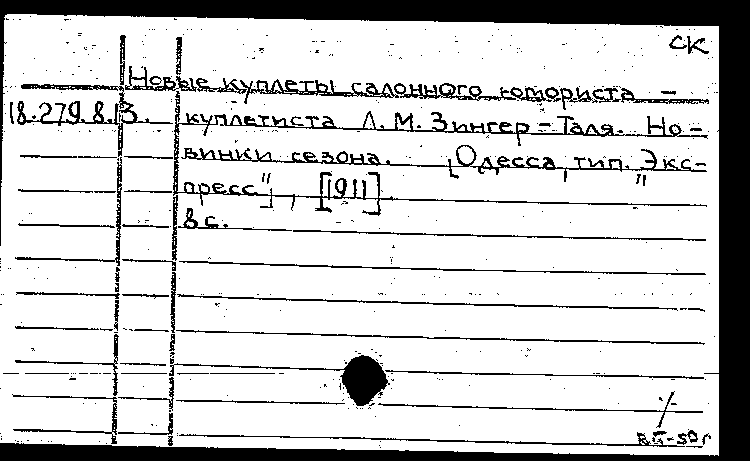 СК
Новые куплеты салонного юмориста –
18.279.8.13. куплетиста Л. М. Зингер–Таля. Но–
винки сезона. [Одесса, тип. „Экс–
пресс"], [1911].
8 с.